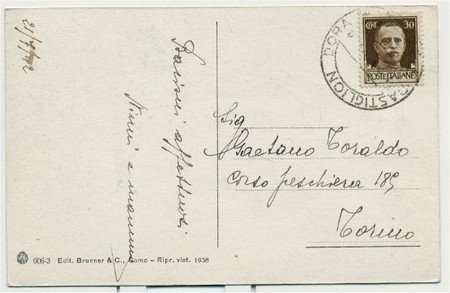 21/7/42
Bacioni affettuosi
Ninni e mamma
CENT. 30
POSTE ITALIANE
DORA
CASTIGLION
Sig
Gaetano Toraldo
Corso peschiera 189
Torino
606-3 Edit. Brenner & C., Como - Ripr. viet. 1938